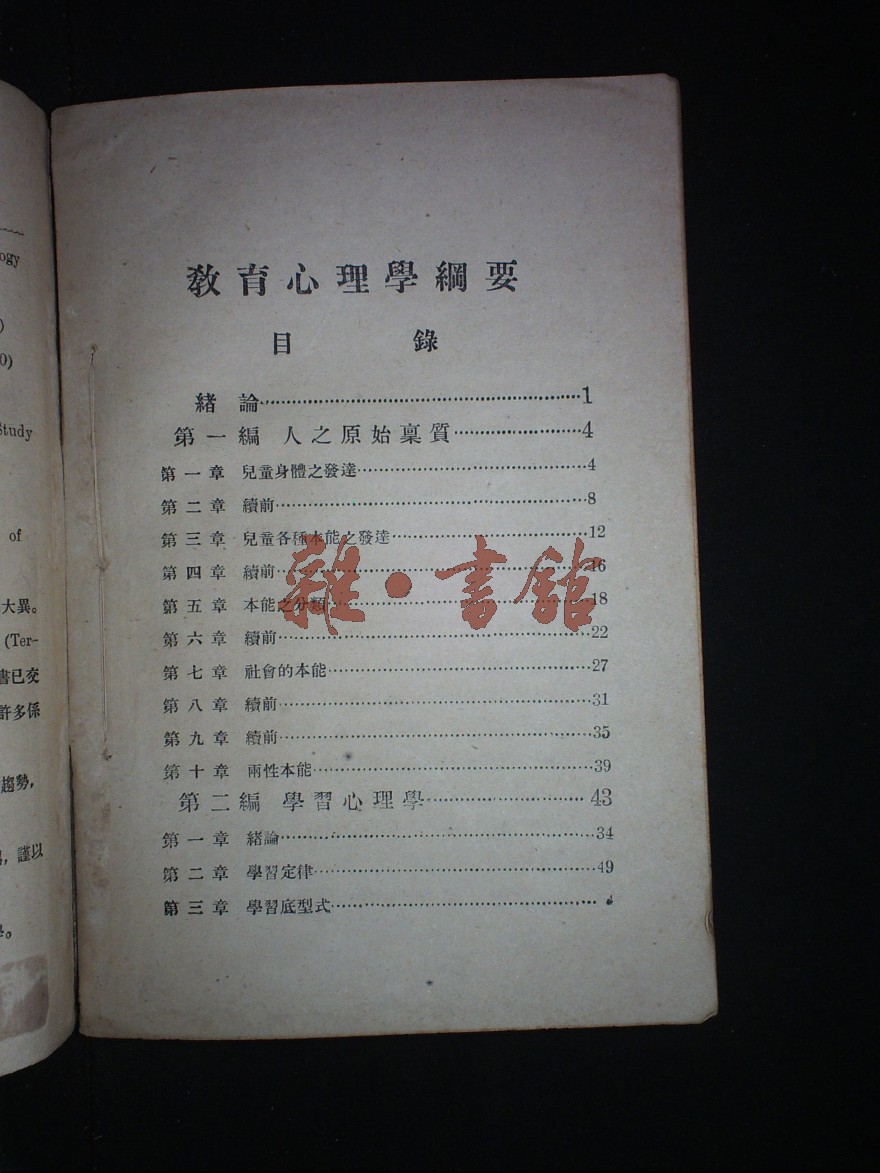 ogy
)
0)
Study
of
大異。
(Ter-
書已交
許多係
趨勢,
謹以
教育心理學綱要
目錄
緒論 1
第一編 人之原始稟質 4
第一章 兒童身體之發達 4
第二章 續前 8
第三章 兒童各種本能之發達 12
第四章 續前 16
第五章 本能之分類 18
第六章 續前 22
第七章 社會的本能 27
第八章 續前 31
第九章 續前 35
第十章 兩性本能 39
第二編 學習心理學 43
第一章 緒論 34
第二章 學習定律 49
第三章 學習底型式
雜·書館